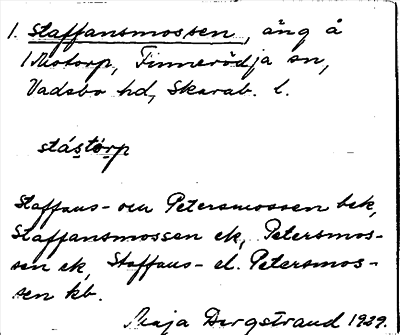 1. Staffansmossen, äng å
Motorp, Finnerödja sn,
Vadsbo hd, Skarab. l.
stástòrp
Staffans- och Petersmossen bek,
Staffansmossen ek, Petersmos-
sen ek, Staffans- el. Petersmos-
sen kb.
Maja Bergstrand 1929.